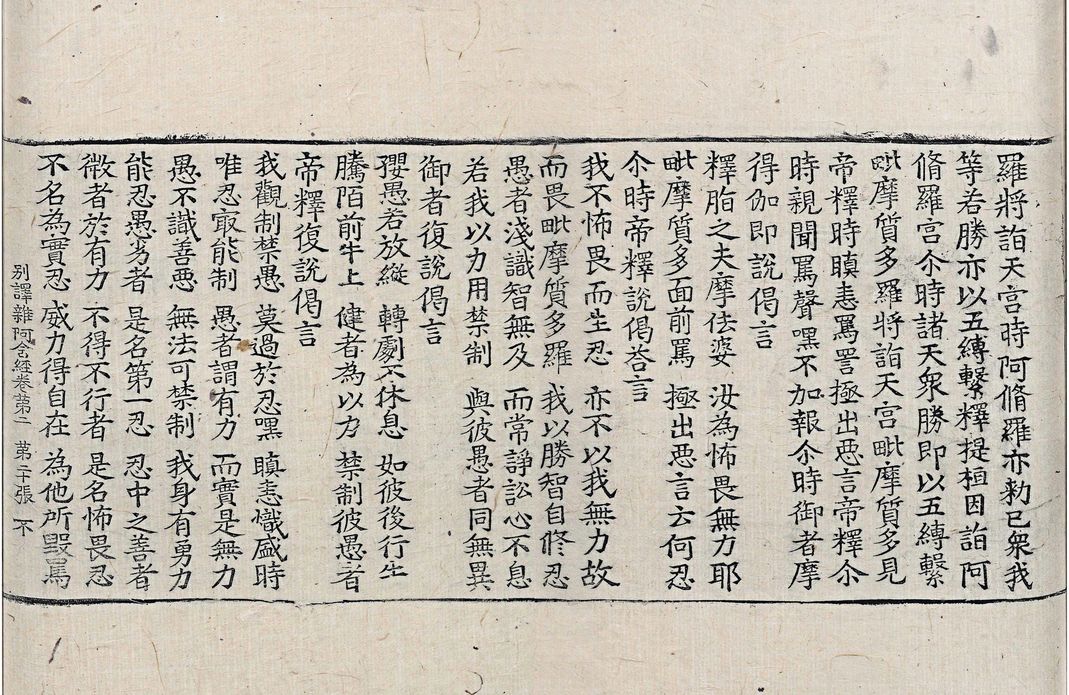 羅將詣天宮時阿脩羅亦勑已衆我
等若勝亦以五縛繫釋提桓因詣阿
脩羅宮尒時諸天衆勝即以五縛繫
毗摩質多羅將詣天宮毗摩質多見
帝釋時瞋恚罵詈極出惡言帝釋尒
時親聞罵聲嘿不加報尒時御者摩
得伽即說偈言
釋脂之夫摩佉婆 汝為怖畏無力耶
毗摩質多面前罵 極出惡言云何忍
尒時帝釋說偈荅言
我不怖畏而生忍 亦不以我無力故
而畏毗摩質多羅 我以勝智自修忍
愚者淺識智無及 而常諍訟心不息
若我以力用禁制 與彼愚者同無異
御者復說偈言
孾愚若放縱 轉劇不休息 如彼後行牛
騰陌前牛上 健者為以力 禁制彼愚者
帝釋復說偈言
我觀制禁愚 莫過於忍嘿 瞋恚熾盛時
唯忍冣能制 愚者謂有力 而實是無力
愚不識善惡 無法可禁制 我身有勇力
能忍愚劣者 是名第一忍 忍中之善者
微者於有力 不得不行者 是名怖畏忍
不名為實忍 威力得自在 為他所毀罵
別譯雜阿含經卷第二 第二十張 不